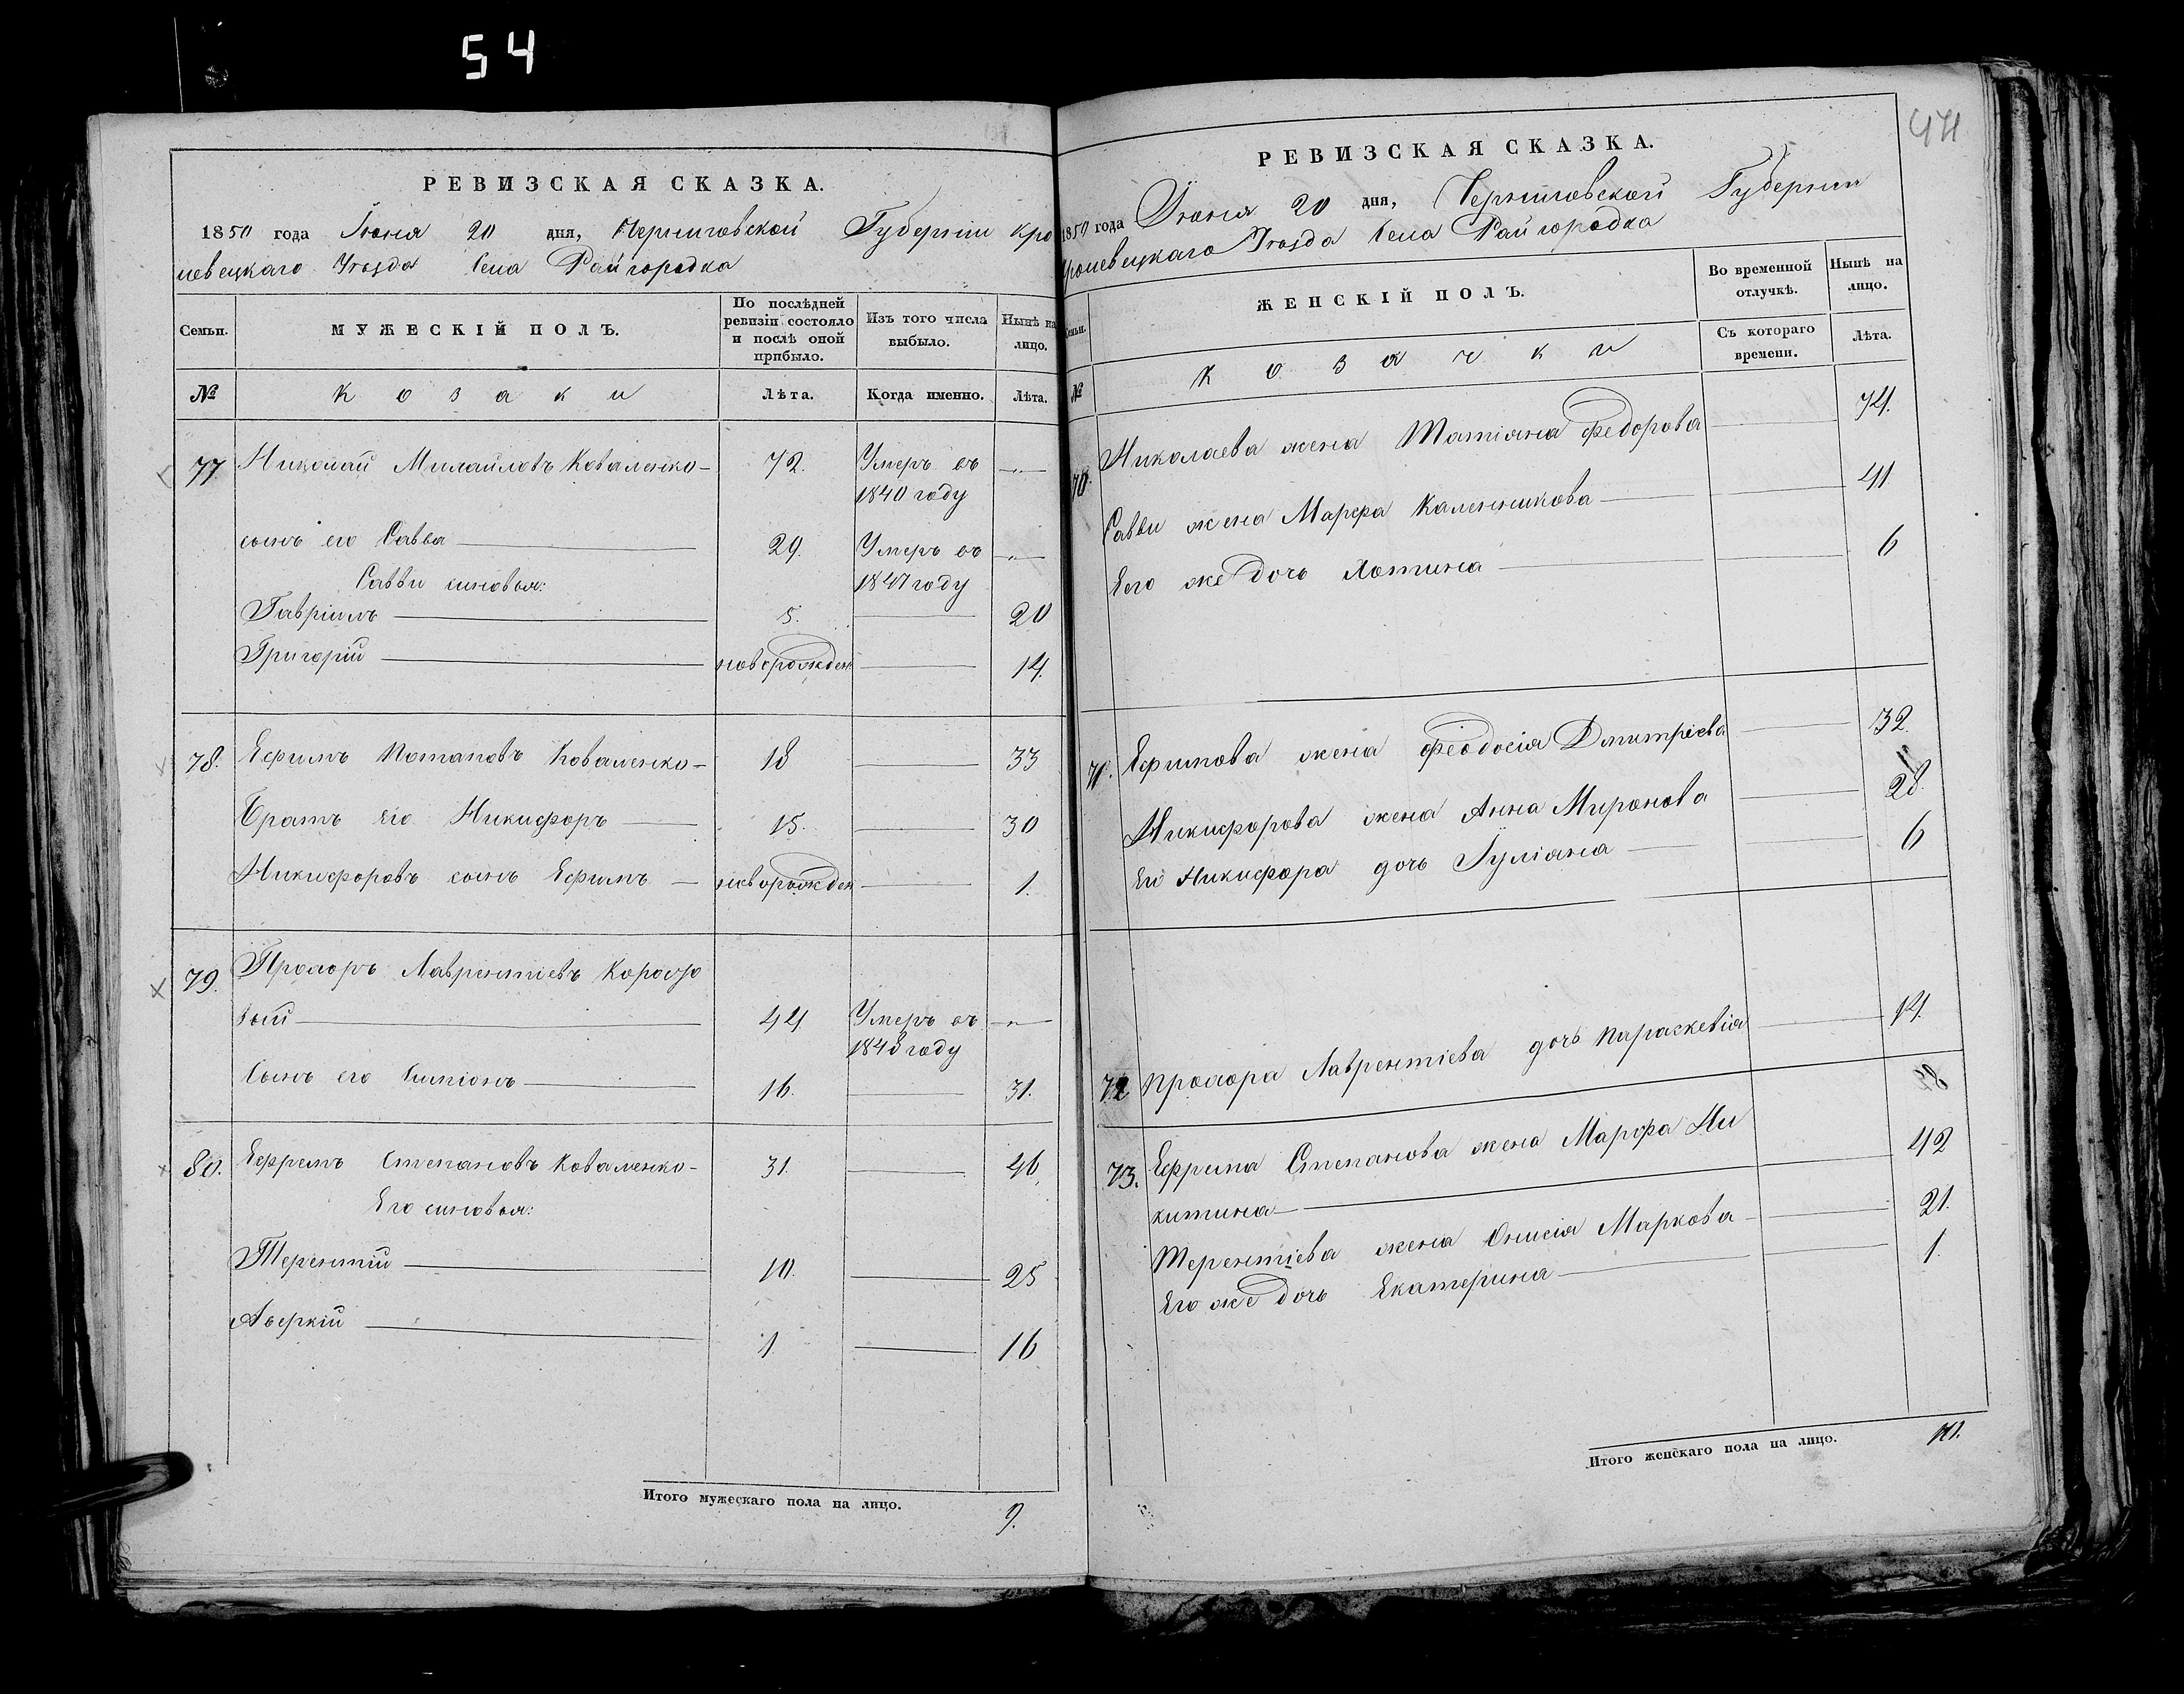 54
РЕВИЗСКАЯ СКАЗКА.
1850 года Іюня 20 дня, Черниговской Губерніи Кро
левецкаго Уезда Села Райгородка
Семьи.
МУЖЕСКІЙ ПОЛЪ.
По послѣдней ревизіи состояло и послѣ оной прибыло.
Изъ того числа выбыло.
Нынѣ на лицо.
№
Козаки
Лѣта.
Когда именно.
Лѣта.
77 Николай Михайловъ Коваленко 72. Умеръ въ 1840 году
сынъ его Савва 29. Умеръ въ 1847 году
Савви сыновья:
Гавріилъ 5. 20
Григорій новорожден 14
78. Ефимъ Потаповъ Коваленко 18 33
Братъ его Никифоръ 15. 30
Никифоровъ сынъ Ефимъ новорожден 1.
79. Прохоръ Лаврентіевъ
вый 44 Умеръ въ 1848 году
Сынъ его Симіонъ 16. 31.
80. Ефремъ Степановъ Коваленко 31. 46
Его сыновья:
Терентій 10. 25
Аверкій 1 16
Итого мужескаго пола на лицо. 9.
РЕВИЗСКАЯ СКАЗКА.
1850 года Іюня 20 дня, Черниговской Губерніи
Кролевецкаго Уезда Села Райгородка
Семьи.
ЖЕНСКІЙ ПОЛЪ.
Во временной отлучкѣ.
Нынѣ на лицо.
№
Козачки
Съ котораго времени.
Лѣта.
70. Николаева жена Татіяна Федорова 74.
Савви жена Марфа Каленникова 41
Его же дочь 6
71. Ефимова жена Феодосія Дмитріева 32.
Никифорова жена Анна Миронова 28.
Его Никифора дочь Іуліяна 6
72 Прохора Лаврентіева дочь Параскевія 14.
73. Ефрема Степанова жена Марфа Ни
китина 42
Терентіева жена Онисія Маркова 21.
Его же дочь Екатерина 1.
Итого женскаго пола на лицо. 10.